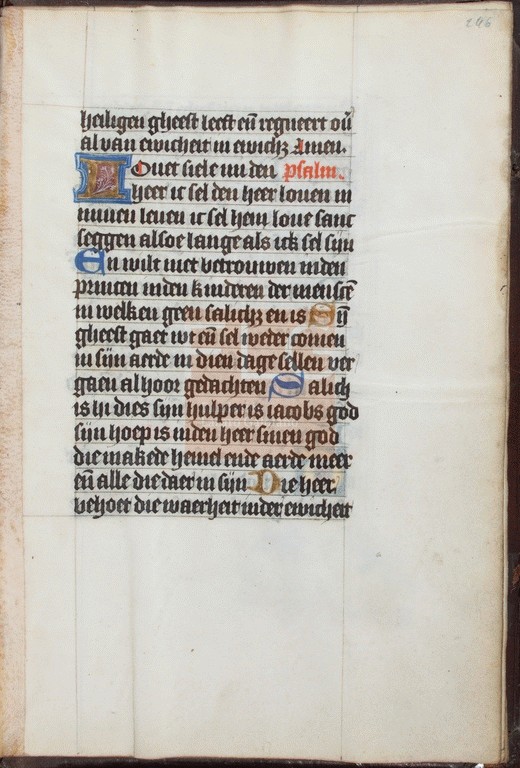 246
heiligen gheest leeft eñ regneert ouͥ
al van ewicheit in ewichz Amen.
Louet siele mi den psalm.
heer ic sel den heer louen in
minen leuen ic sel hem loue sanc
seggen alsoe lange als ick sel sijn
En wilt niet betrouwen inden
princen inden kinderen der menscē
in welken geen salichz en is Sij̄
gheest gaet wt eñ sel weder comen
in sijn aerde in dien dage sellen ver
gaen al hoor gedachten Salich
is hi dies sijn hulper is iacobs god
sijn hoep is inden heer sinen god
die makede hemel ende aerde meer
eñ alle die daer in sijn Die heer
behoet die waerheit inder ewicheit